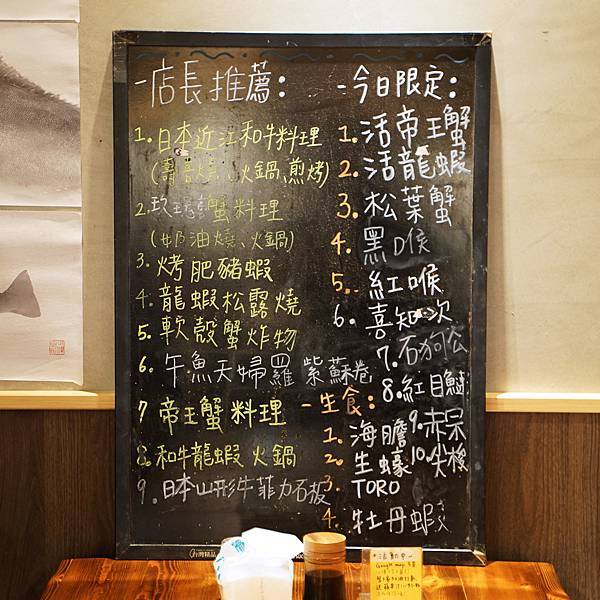 -店長推薦:
1.日本近江和牛料理
(壽喜燒、火鍋、煎烤)
2.玫瑰蟹料理
(奶油燒、火鍋)
3.烤肥豬蝦
4.龍蝦松露燒
5.軟殼蟹炸物
6.午魚天婦羅 紫蘇卷
7 帝王蟹料理
8.和牛龍蝦 火鍋
9.日本山形牛菲力石板
-今日限定:
1.活帝王蟹
2.活龍蝦
3.松葉蟹
4.黑喉
5.紅喉
6.喜知次
7.石狗公
8.紅目鰱
9.赤呆
10.尖梭
-生食:
1.海膽
2.生蠔
3.TORO
4.牡丹蝦